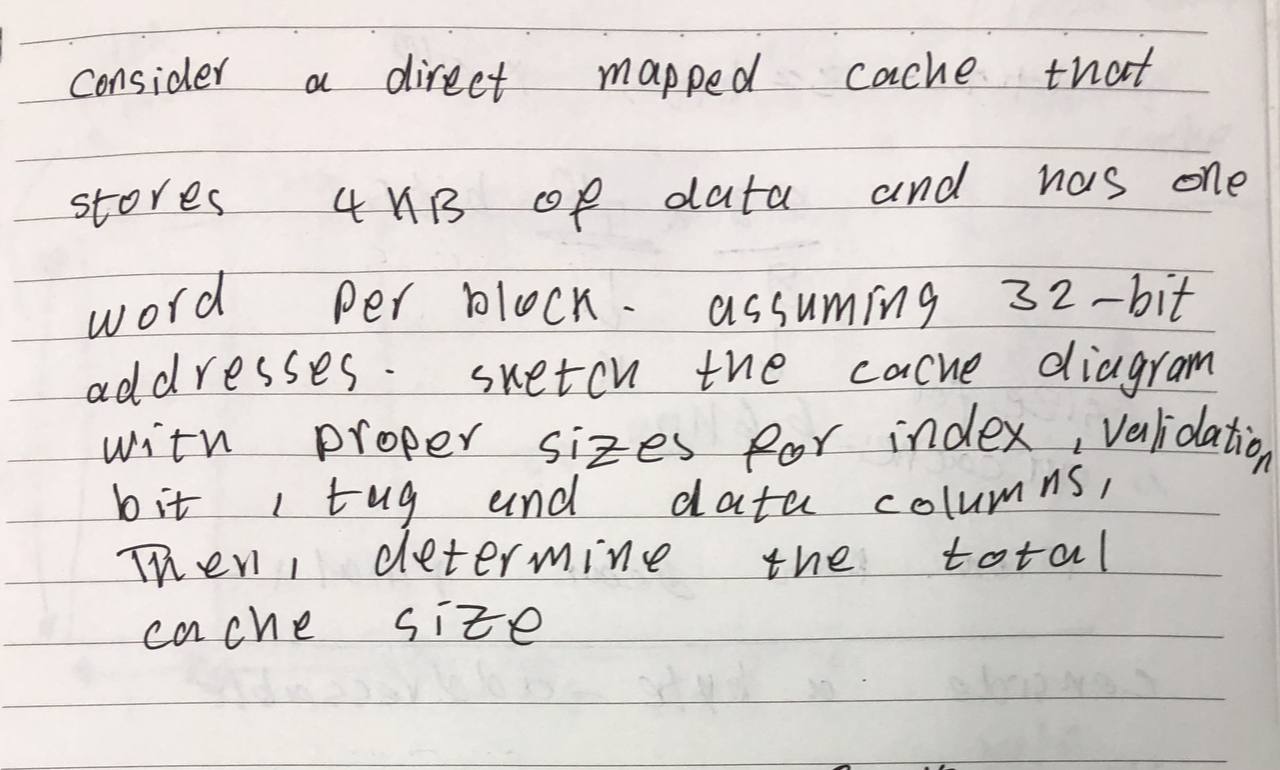 consider a direct mapped cache that
stores 4 KB of data and has one
word per block. assuming 32-bit
addresses. sketch the cache diagram
with proper sizes for index, validation
bit, tag and data columns,
Then, determine the total
cache size